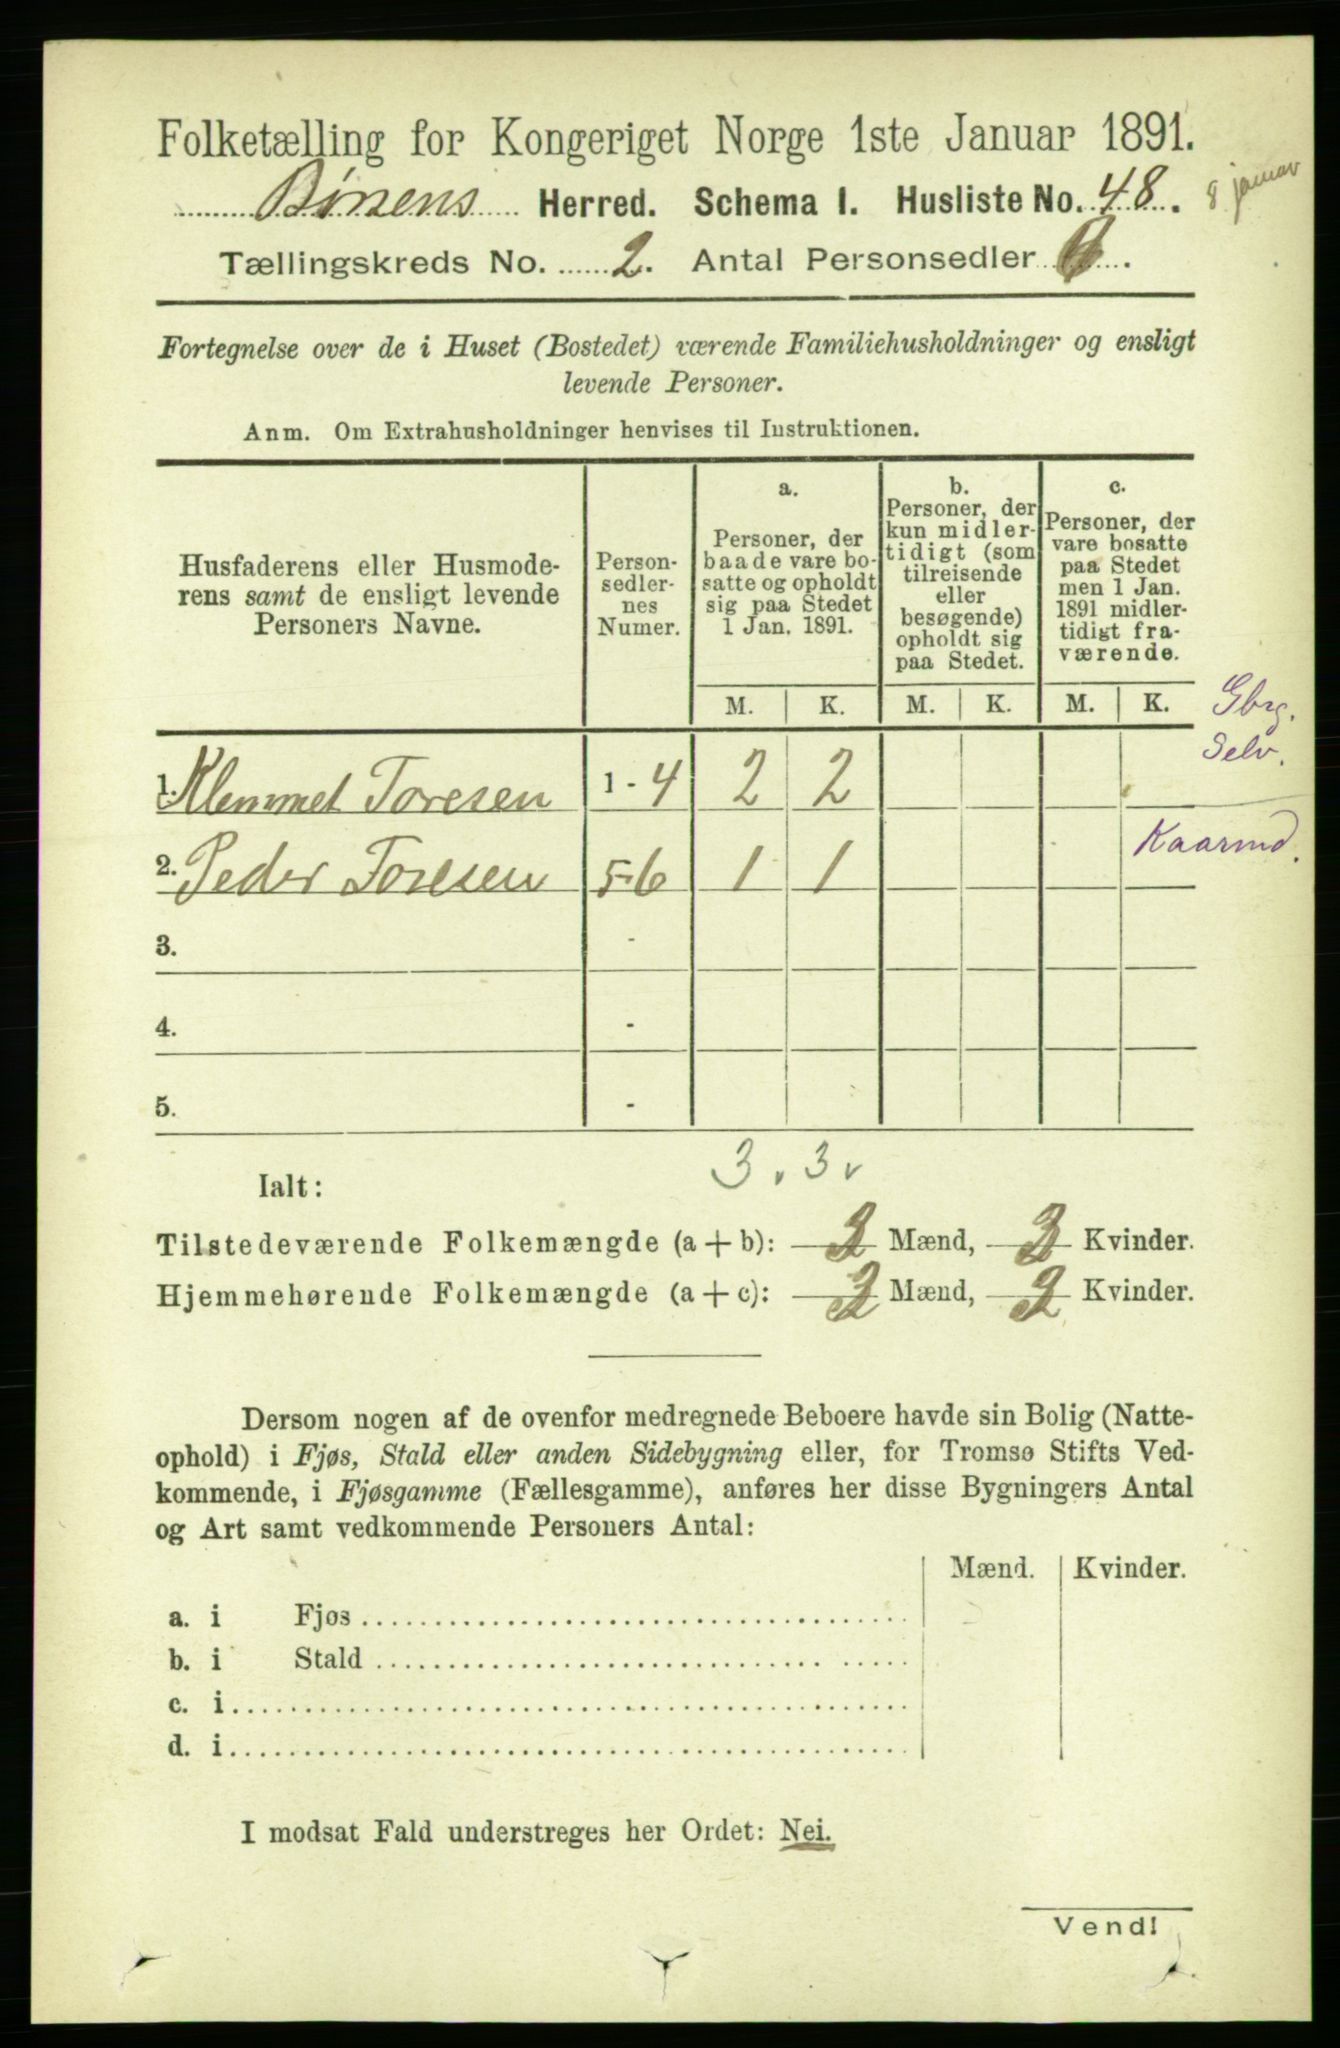 Folketælling for Kongeriget Norge 1ste Januar 1891.
Børsens Herred. Schema I. Husliste No. 48.
8 januar
Tællingskreds No. 2. Antal Personsedler 6.
Fortegnelse over de i Huset (Bostedet) værende Familiehusholdninger og ensligt
levende Personer.
Anm. Om Extrahusholdninger henvises til Instruktionen.
Husfaderens eller Husmode-
rens samt de ensligt levende
Personers Navne.
Person-
sedler-
nes
Numer.
a.
Personer, der
baade vare bo-
satte og opholdt
sig paa Stedet
1 Jan. 1891.
b.
Personer, der
kun midler-
tidigt (som
tilreisende
eller
besøgende)
opholdt sig
paa Stedet.
c.
Personer, der
vare bosatte
paa Stedet
men 1 Jan.
1891 midler-
tidigt fra-
værende.
M. K. M. K. M. K.
Gbrg.
Selv.
1. Klemmet Toresen 1-4 2 2
2. Peder Toresen 5-6 1 1
Kaarmd.
3. -
4. -
5. -
3. 3.
Ialt:
Tilstedeværende Folkemængde (a + b): 3 Mænd, 3 Kvinder.
Hjemmehørende Folkemængde (a + c): 3 Mænd, 3 Kvinder.
Dersom nogen af de ovenfor medregnede Beboere havde sin Bolig (Natte-
ophold) i Fjøs, Stald eller anden Sidebygning eller, for Tromsø Stifts Ved-
kommende, i Fjøsgamme (Fællesgamme), anføres her disse Bygningers Antal
og Art samt vedkommende Personers Antal:
Mænd. Kvinder.
a. i Fjøs
b. i Stald
c. i
d. i
I modsat Fald understreges her Ordet: Nei.
Vend!